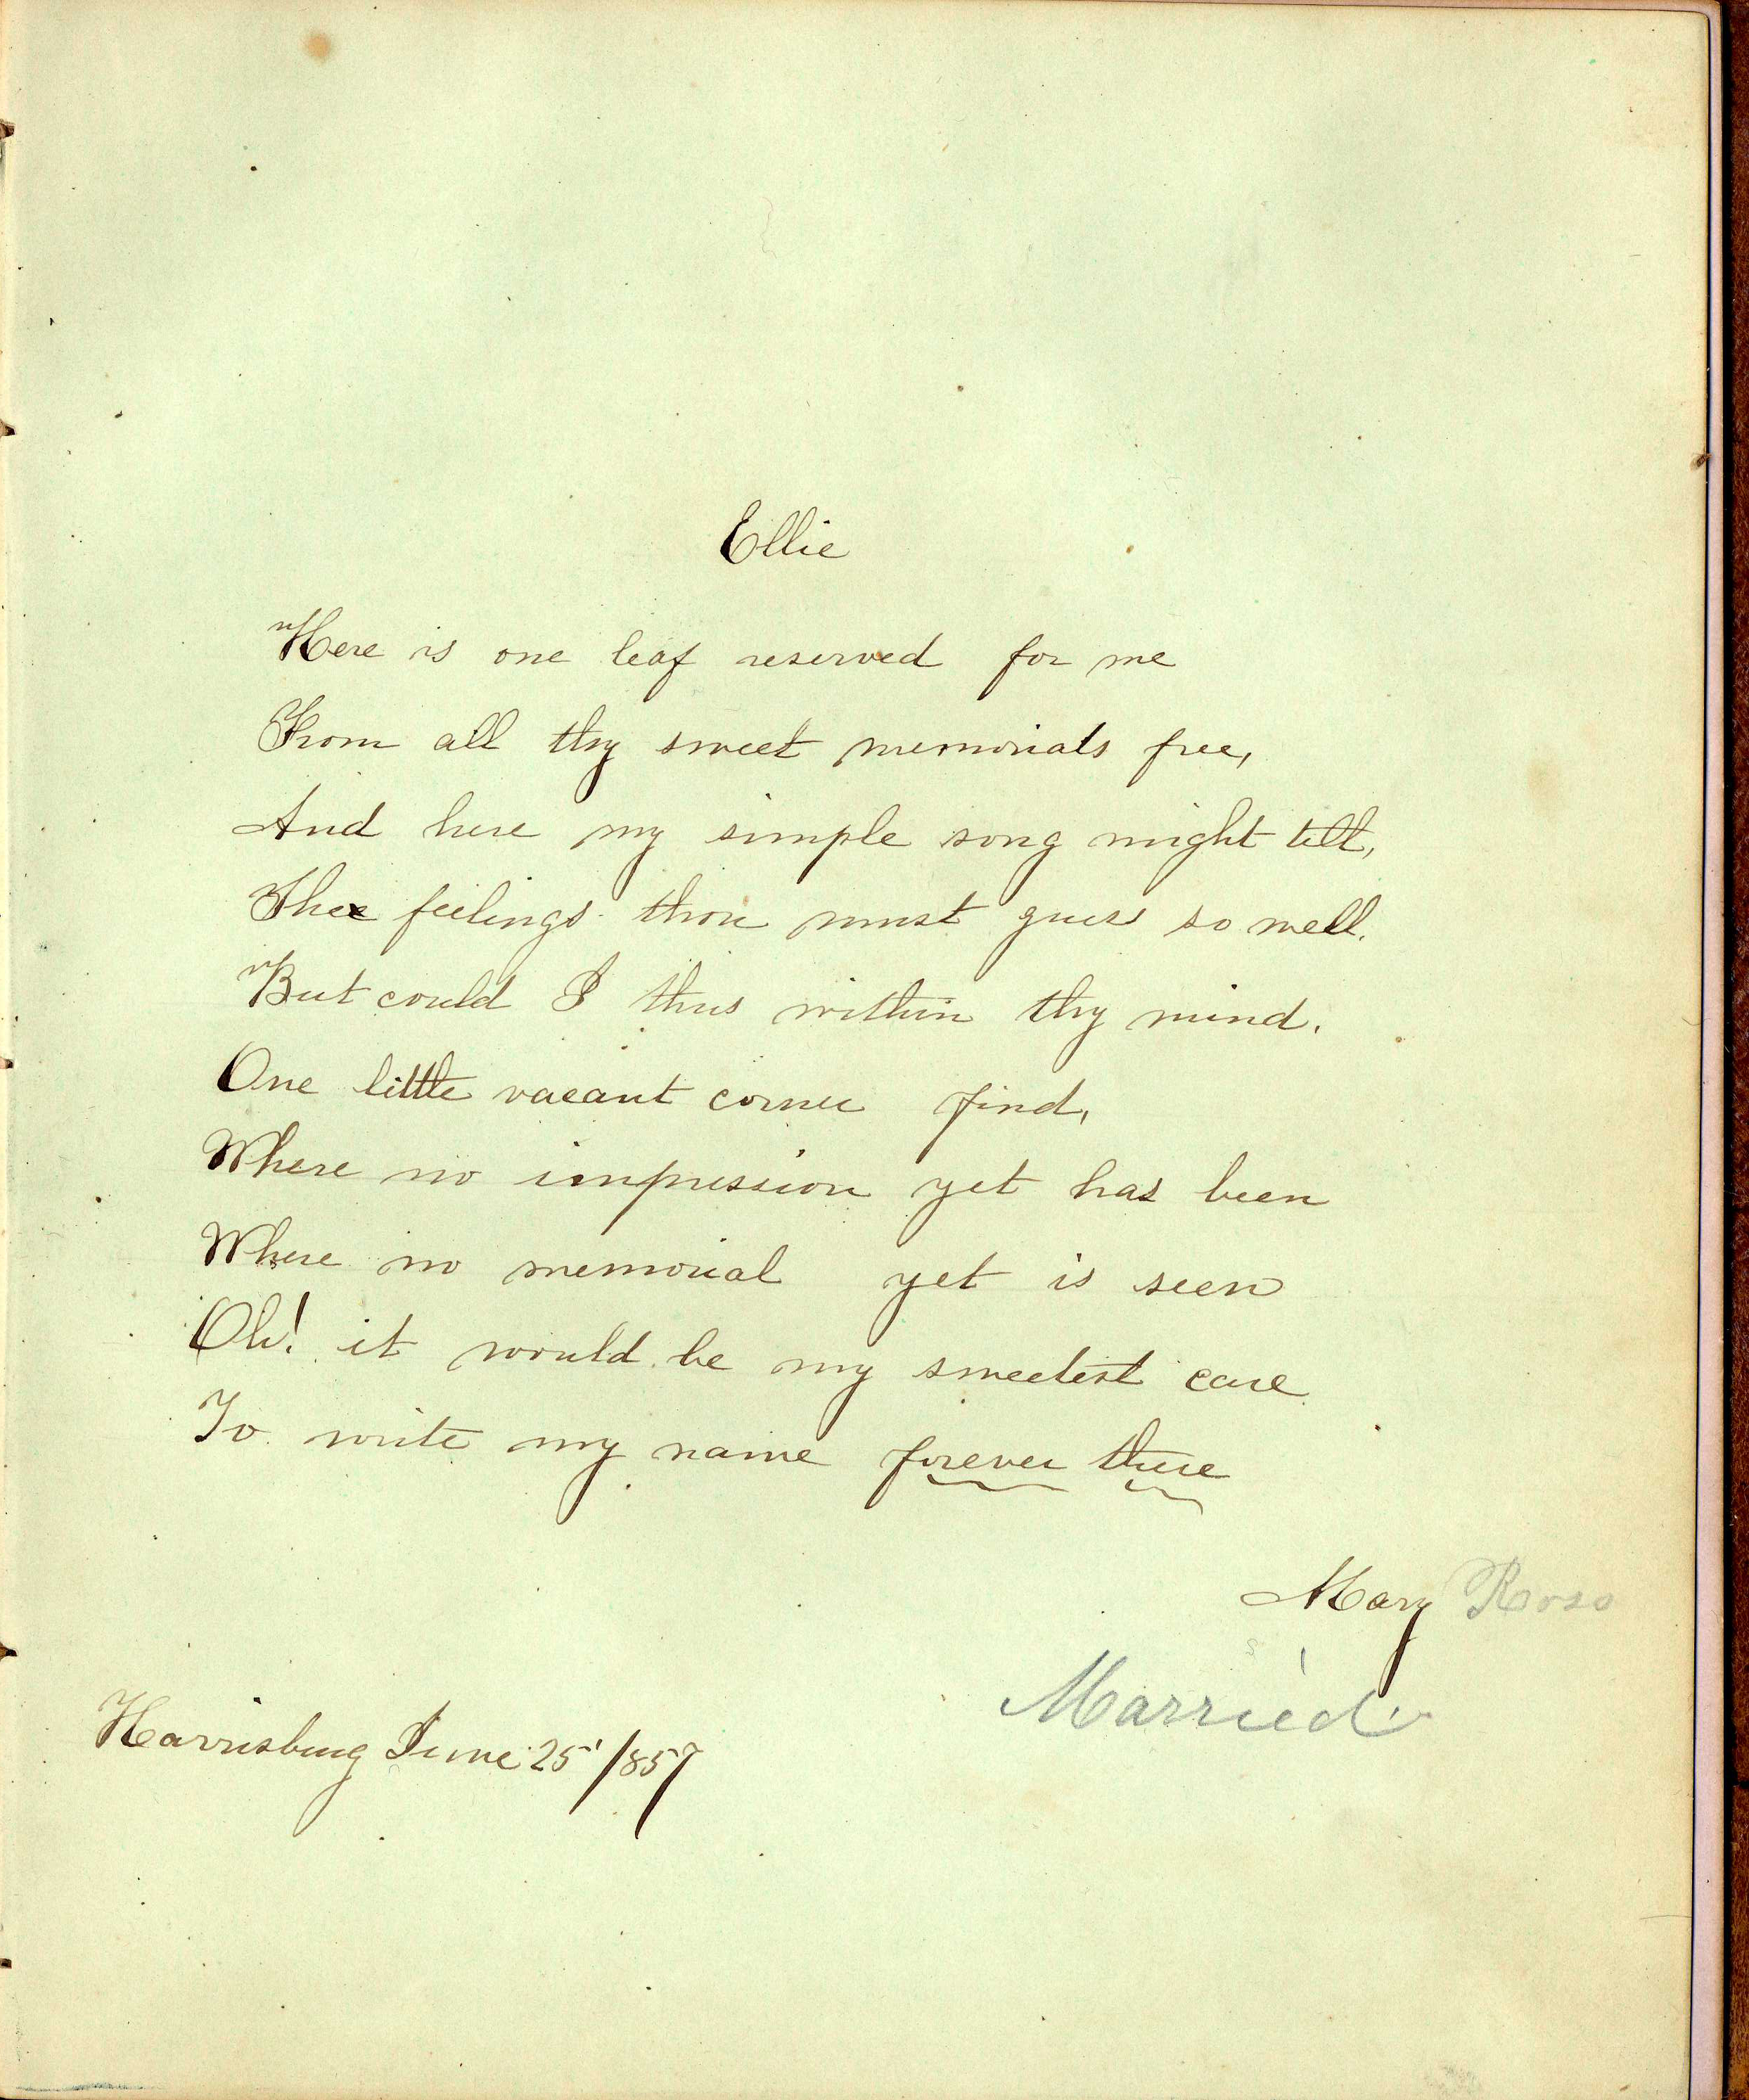 Ellie
Here is one leaf reserved for me
From all thy sweet memorials free,
And here my simple song might tell,
The feelings thou must guess so well.
But could I thus within thy mind.
One little vacant corner find,
Where no impression yet has been
Where no memorial yet is seen
Oh! it would be my sweetest care
To write my name forever there
Mary Ross
Married
Harrisburg June 25 1857